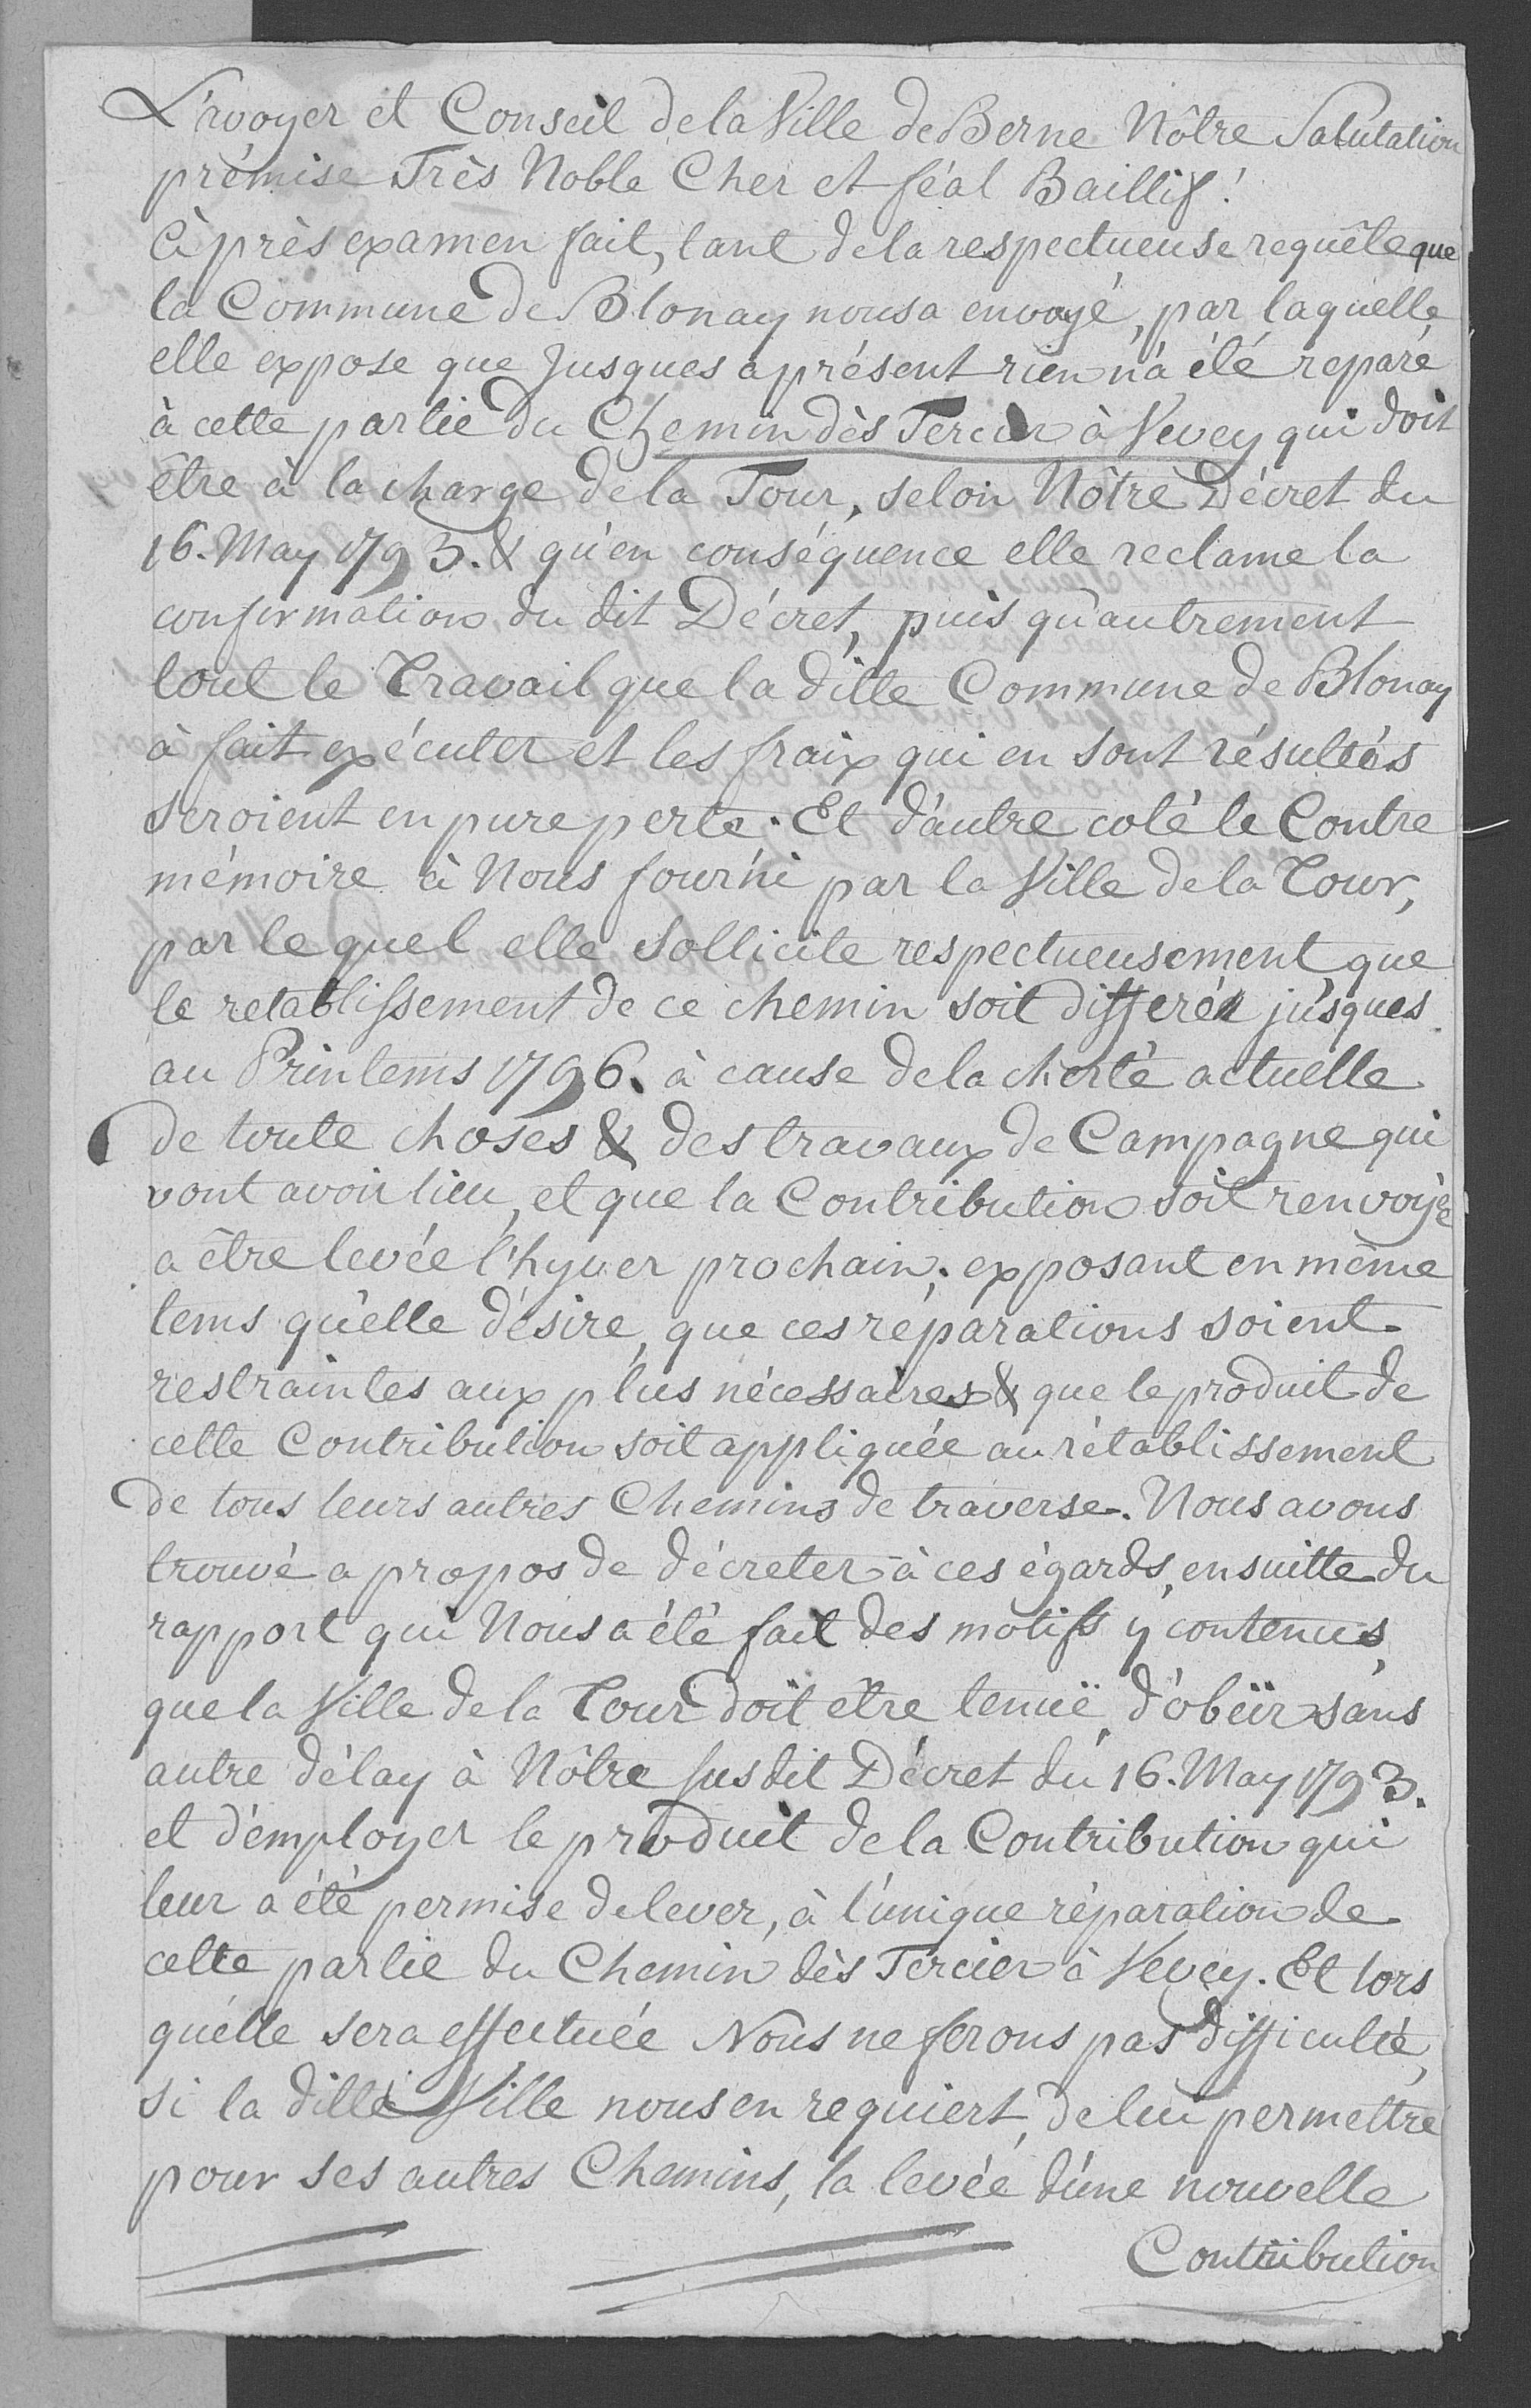 L'avoyer et Conseil de la Ville de Berne Nôtre Salutation
prémise Très Noble Cher et féal Baillif!
Après examen fait, tant de la respectueuse requête que
la Commune de Blonay nous a envoyé, par laquelle
elle expose que Jusques a présent rien n'a été reparé
à cette partie du Chemin dès Tercier à Vevey qui doit
être à la charge de la Tour, selon Nôtre Décret du
16. May 1793. & qu'en conséquence elle reclame la
confirmation du dit Décret, puis qu'autrement
tout le Travail que la ditte Commune de Blonay
à fait exécuter et les fraix qui en sont résultés
seroient en pure perte. Et d'autre coté le Contre
mémoire à Nous fourni par la Ville de la Tour,
par le quel elle sollicite respectueusement que
le retablissement de ce chemin soit differé jusques
au Printems 1796. à cause de la cherté actuelle
de toute choses & des travaux de Campagne qui
vont avoir lieu, et que la Contribution soit renvoyée
a être levée l'hyver prochain; exposant en même
tems qu'elle désire, que ces réparations soient
restraintes aux plus nécessaires & que le produit de
cette Contribution soit appliquée au rétablissement
de tous leurs autres Chemins de traverse. Nous avons
trouvé a propos de décreter à ces égards, ensuitte du
rapport qui Nous a été fait des motifs y contenus,
que la Ville de la Tour doit être tenuë d'obéir sans
autre délay à Nôtre susdit Décret du 16. May 1793.
et d'employer le produit de la Contribution qui
leur a été permise de lever, à l'unique réparation de
cette partie du Chemin dès Tercier à Vevey. Et lors
qu'elle sera effectuée Nous ne ferons pas difficulté,
si la ditte Ville nous en requiert, de lui permettre
pour ses autres Chemins, la levée d'une nouvelle
Contribution